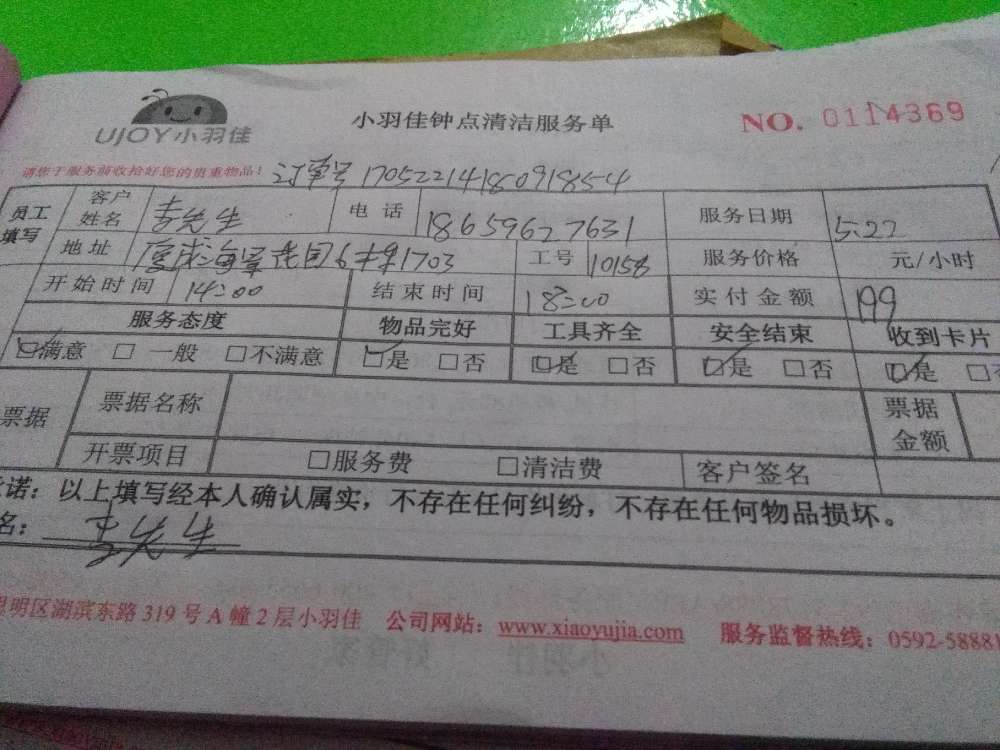 UJOY小羽佳
小羽佳钟点清洁服务单
NO. 0114369
请您于服务前收拾好您的贵重物品!
订单号 170522141809 1854
员工填写 客户姓名 李先生 电话 18659627631 服务日期 5.22
地址 6 1703 工号 10158 服务价格 元/小时
开始时间 14:00 结束时间 18:00 实付金额 199
服务态度 物品完好 工具齐全 安全结束 收到卡片
☑满意 □一般 □不满意 ☑是 □否 ☑是 □否 ☑是 □否 ☑是 □
票据 票据名称 票据金额
开票项目 □服务费 □清洁费 客户签名
诺:以上填写经本人确认属实,不存在任何纠纷,不存在任何物品损坏。
名: 李先生
明区湖滨东路319号A幢2层小羽佳 公司网站:www.xiaoyujia.com 服务监督热线:0592-58881